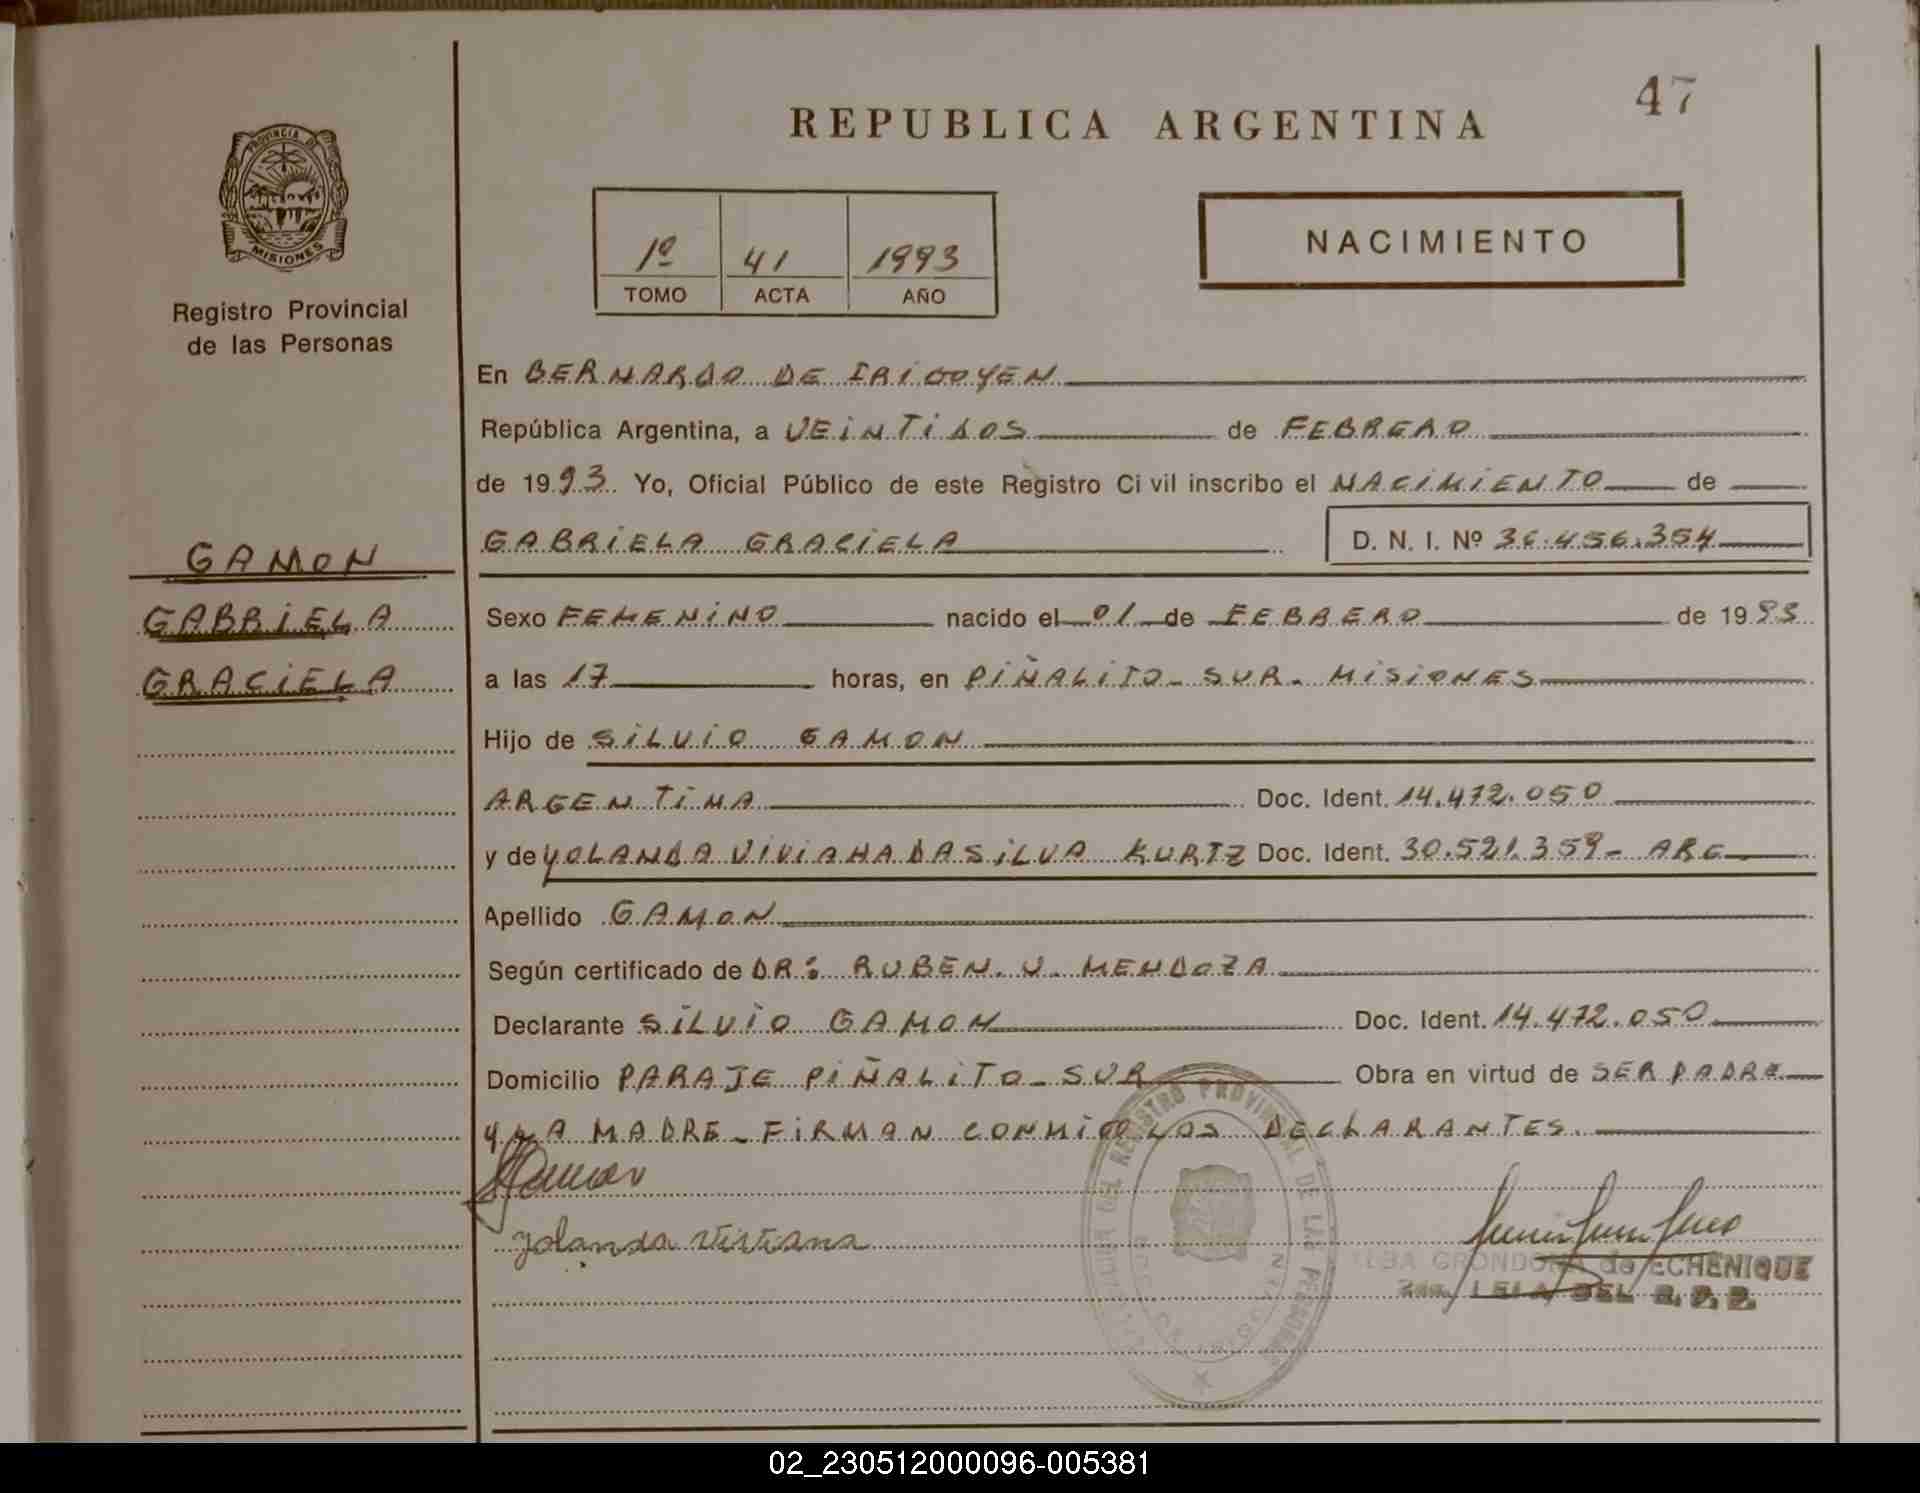 47
REPUBLICA ARGENTINA
PROVINCIA DE
MISIONES
Registro Provincial
de las Personas
1º 41 1993
TOMO ACTA AÑO
NACIMIENTO
En BERNARDO DE IRIGOYEN
República Argentina, a VEINTIDOS de FEBRERO
de 1993 Yo, Oficial Público de este Registro Civil inscribo el NACIMIENTO de
GABRIELA GRACIELA D. N. I. Nº 36.456.354
GAMON
GABRIELA
GRACIELA
Sexo FEMENINO nacido el 01 de FEBRERO de 1993
a las 17 horas, en PIÑALITO-SUR- MISIONES
Hijo de SILVIO GAMON
ARGENTINA Doc. Ident. 14.472.050
y de YOLANDA VIVIANA DA SILVA KURTZ Doc. Ident. 30.521.359- ARG
Apellido GAMON
Según certificado de DR: RUBEN. V. MENDOZA
Declarante SILVIO GAMON Doc. Ident. 14.472.050
Domicilio PARAJE PIÑALITO-SUR Obra en virtud de SER PADRE
Y LA MADRE-FIRMAN CONMIGO LOS DECLARANTES.
Yolanda Viviana
REGISTRO PROVINCIAL DE LAS PERSONAS
GRONDONA de ECHENIQUE
DEL R. P. P.
02_230512000096-005381